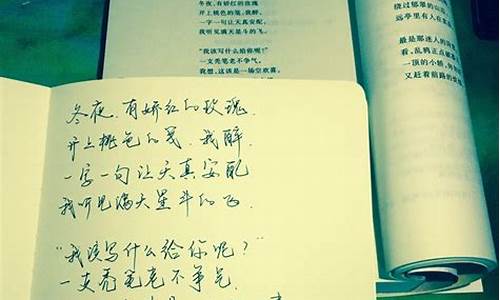 冬夜，有娇红的玫瑰
开上桃色的笺，我醉，
一字一句让天真安配，
我听见满天星斗的飞。
“我该写什么给你呢？”
一支秃笔老不争气，
我想，这该是一场空欢喜。
绕过郁翠的山
远亭里有人在
最是那迷人的
看，乱鸦正点破
一顶的小轿，
又赶着前路的
冬夜，有娇红的玫瑰，
开上桃色的笺，我醉，
一字一句让天真安配
我听见满天星斗的飞．
“我该写什么给你呢？”
一支秃笔老不争气．